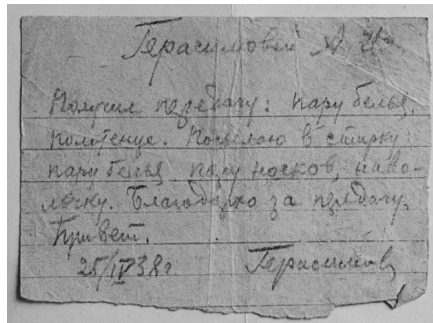 Герасимовой А
Получил передачу: пару белья,
полотенце. Посылаю в стирку:
пару белья пару носков, наво-
лочку. Благодарю за передачу.
Привет.
25/IV 38г Герасимов